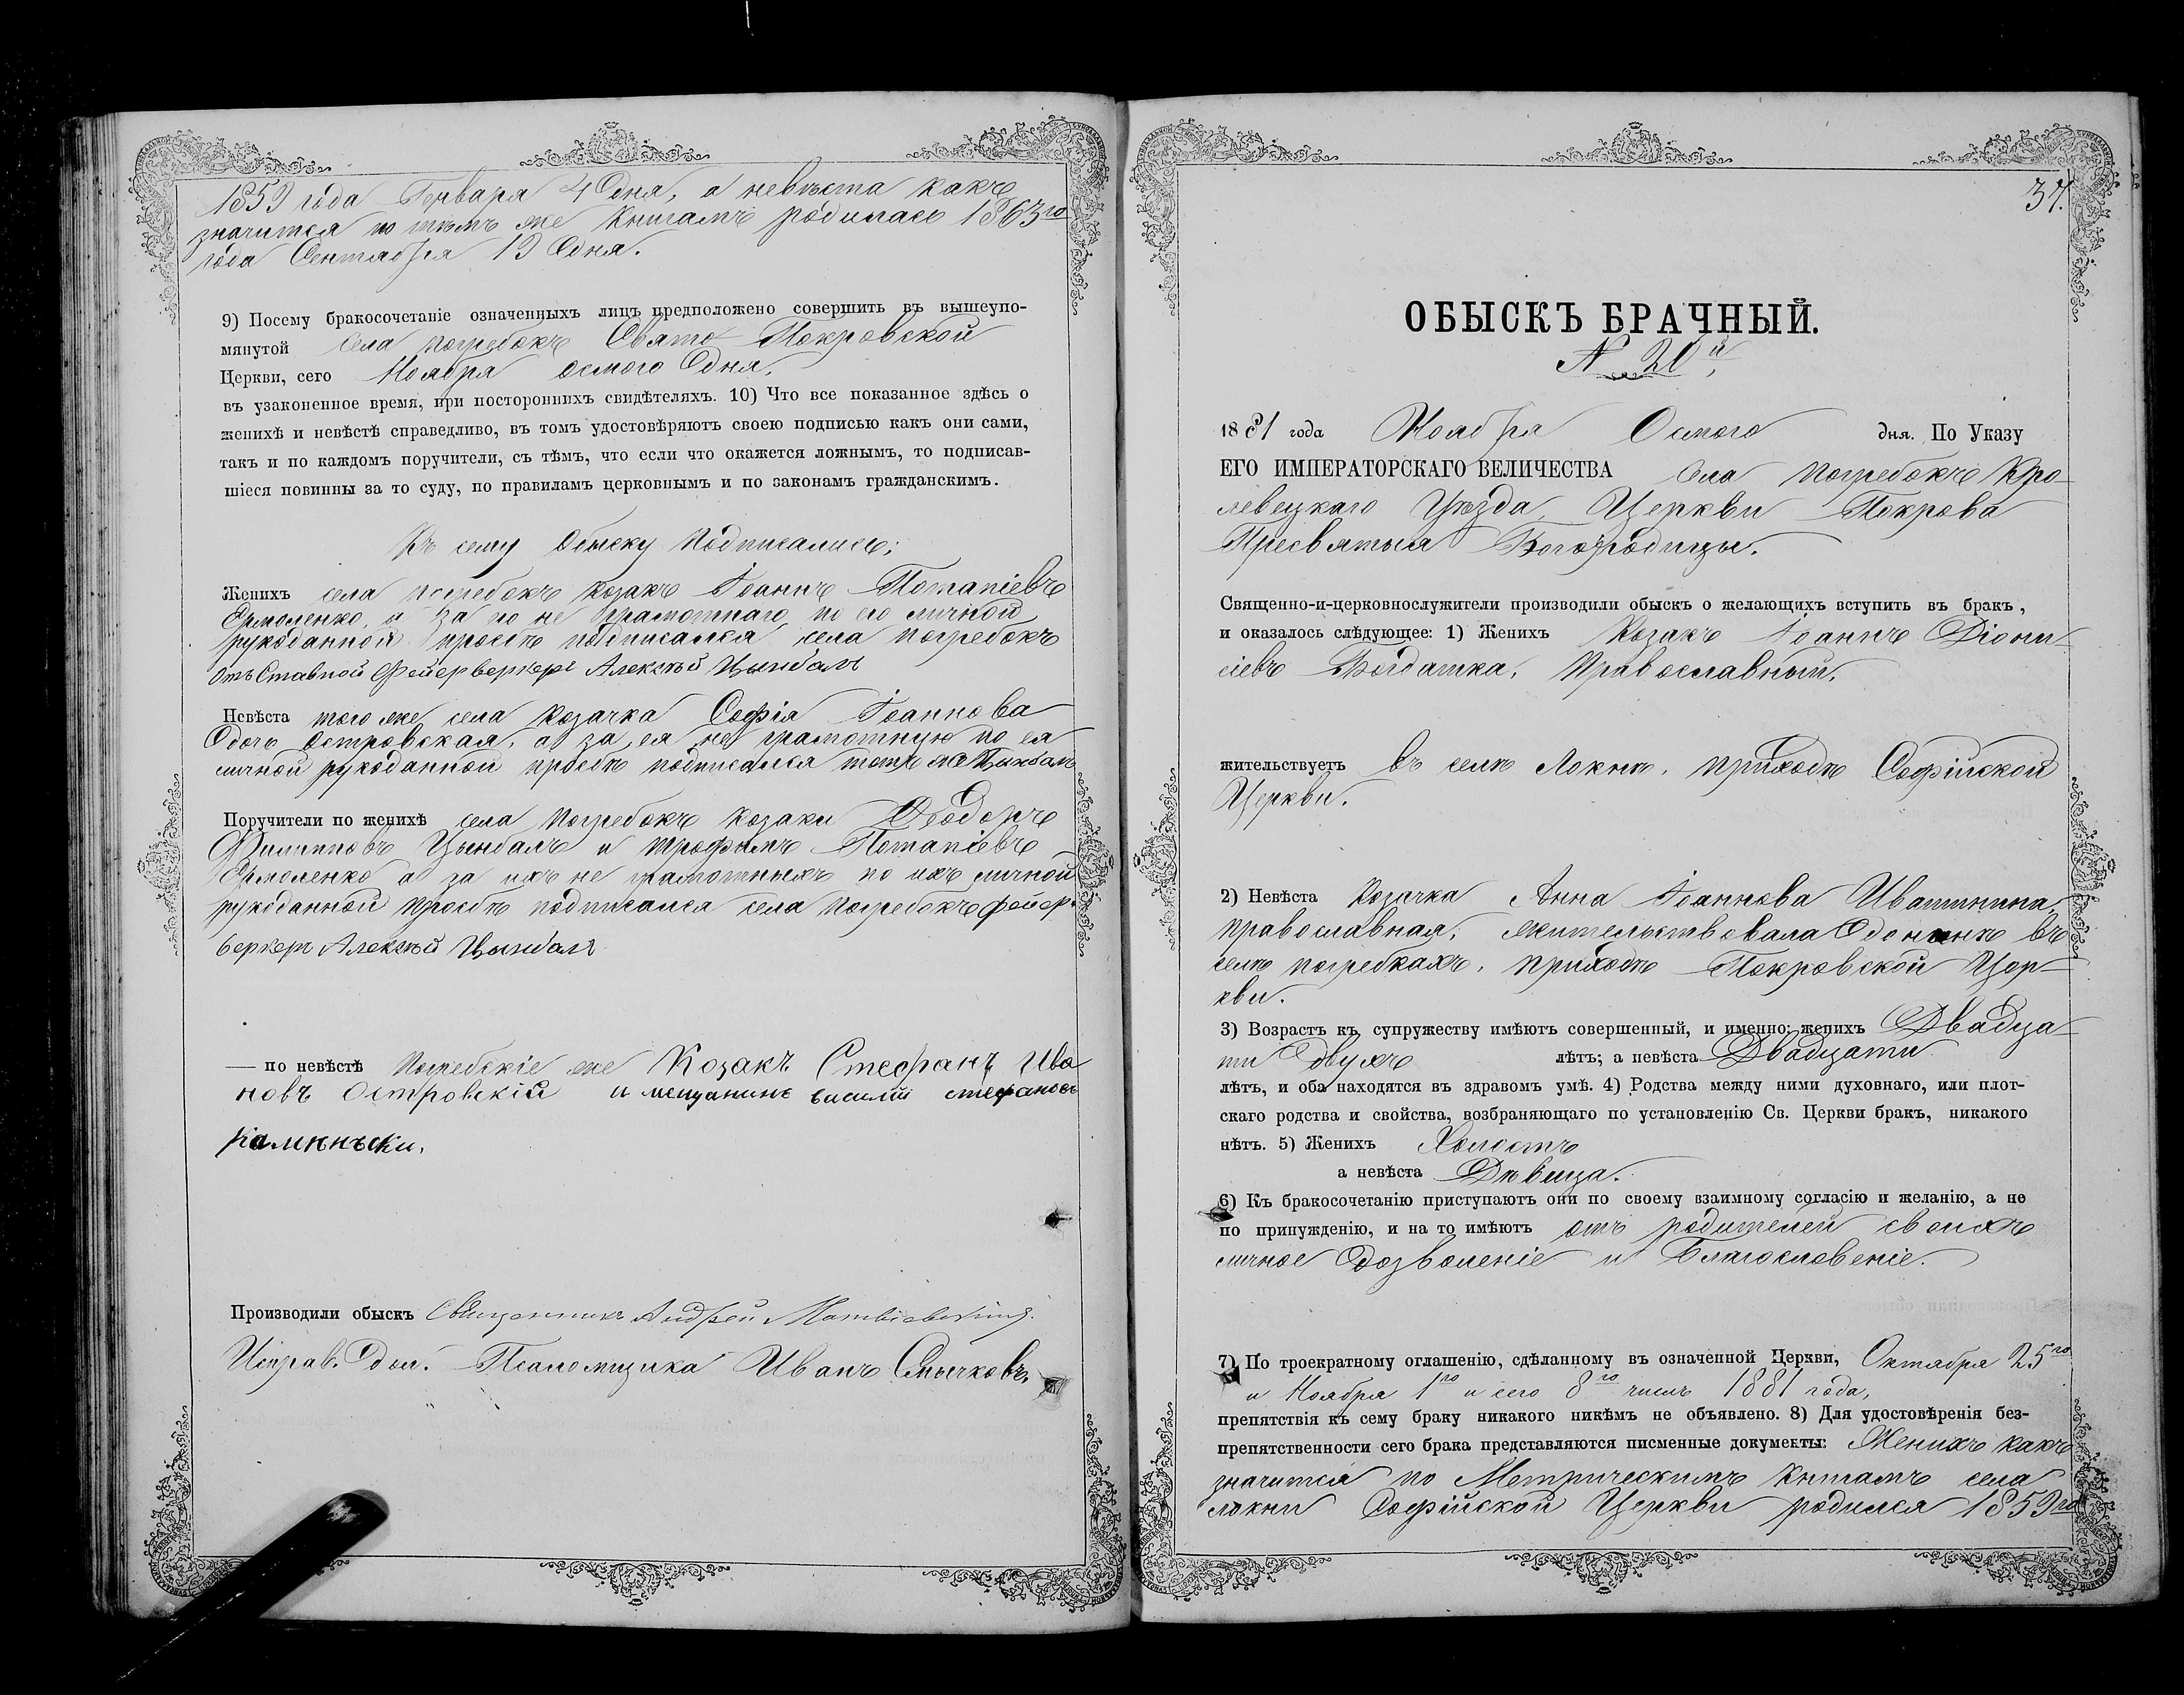 1859 года Генваря 4 дня, а невѣста какъ
значится по тѣмъ же книгамъ родилась 1863го
года Сентября 19 дня.
9) Посему бракосочетаніе означенныхъ лицъ предположено совершить въ вышеупо-
мянутой села Погребокъ Свято-Покровской
Церкви, сего Ноября осмого дня,
въ узаконенное время, при постороннихъ свидѣтеляхъ. 10) Что все показанное здѣсь о
женихѣ и невѣстѣ справедливо, въ томъ удостовѣряютъ своею подписью какъ они сами,
такъ и по каждомъ поручители, съ тѣмъ, что если что окажется ложнымъ, то подписав-
шіеся повинны за то суду, по правиламъ церковнымъ и по законамъ гражданскимъ.
Къ сему обыску подписались:
Женихъ села погребокъ козакъ Іоаннъ Потапіевъ
Ермоленко, а за го не грамотнаго по его личной
рукоданной прозьбѣ подписался села погребокъ
отъставной фейерверкеръ Алексѣй Цындалъ
Невѣста того же села козачка Софія Іоаннова
дочь Островская, а за ея не грамотную по ея
личной рукоданной прозьбѣ подписался тотъ же Цындалъ
Поручители по женихѣ села погребокъ козаки Ѳеодоръ
Филипповъ Цындалъ и Трофимъ Потапіевъ
Ермоленко а за ихъ не грамотныхъ по ихъ личной
рукоданной прозьбѣ подписался села погребокъ фейер-
веркеръ Алексѣй Цындалъ
— по невѣстѣ Погребскіе же Козакъ Стефанъ Ива
новъ Островскій и мещанинъ василій стефановъ
каминьски.
Производили обыскъ Священникъ Андрей Матвіевскій.
Исправ. дол. Псаломщика Иванъ Смычковъ.
37.
ОБЫСКЪ БРАЧНЫЙ.
N 20й,
1881 года Ноября Осмого дня. По Указу
ЕГО ИМПЕРАТОРСКАГО ВЕЛИЧЕСТВА села Погребокъ Кро-
левецкаго Уѣзда, Церкви Покрова
Пресвятыя Богородицы.
Священно-и-церковнослужители производили обыскъ о желающихъ вступить въ бракъ,
и оказалось слѣдующее: 1) Женихъ Козакъ Іоаннъ Діони-
сіевъ Богдатка, Православный,
жительствуетъ въ селѣ Локнѣ, приходѣ Софійской
Церкви.
2) Невѣста Козачка Анна Іоаннова Ивашинина,
православная; жительствовала донынѣ въ
селѣ погребкахъ, приходѣ Покровской Цер-
кви.
3) Возрастъ къ супружеству имѣютъ совершенный, и именно: женихъ Двадца-
ти двухъ лѣтъ; а невѣста Двадцати
лѣтъ, и оба находятся въ здравомъ умѣ. 4) Родства между ними духовнаго, или плот-
скаго родства и свойства, возбраняющаго по установленію Св. Церкви бракъ, никакого
нѣтъ. 5) Женихъ Холостъ
а невѣста Дѣвица.
6) Къ бракосочетанію приступаютъ они по своему взаимному согласію и желанію, а не
по принужденію, и на то имѣютъ отъ родителей своихъ
личное дозволеніе и благословеніе.
7) По троекратному оглашенію, сдѣланному въ означенной Церкви, Октября 25го
и Ноября 1го и сего 8го числъ 1881 года,
препятствія къ сему браку никакого никѣмъ не объявлено. 8) Для удостовѣренія без-
препятственности сего брака представляются писменные документы: Женихъ какъ
значится по Метрическимъ книгамъ села
локни Софійской Церкви родился 1859го